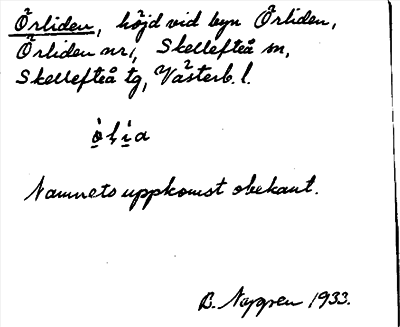 Örliden, höjd vid byn Örliden,
Örliden nr 1, Skellefteå sn,
Skellefteå tg, Västerb. l.
Namnets uppkomst obekant.
B. Nygren 1933.